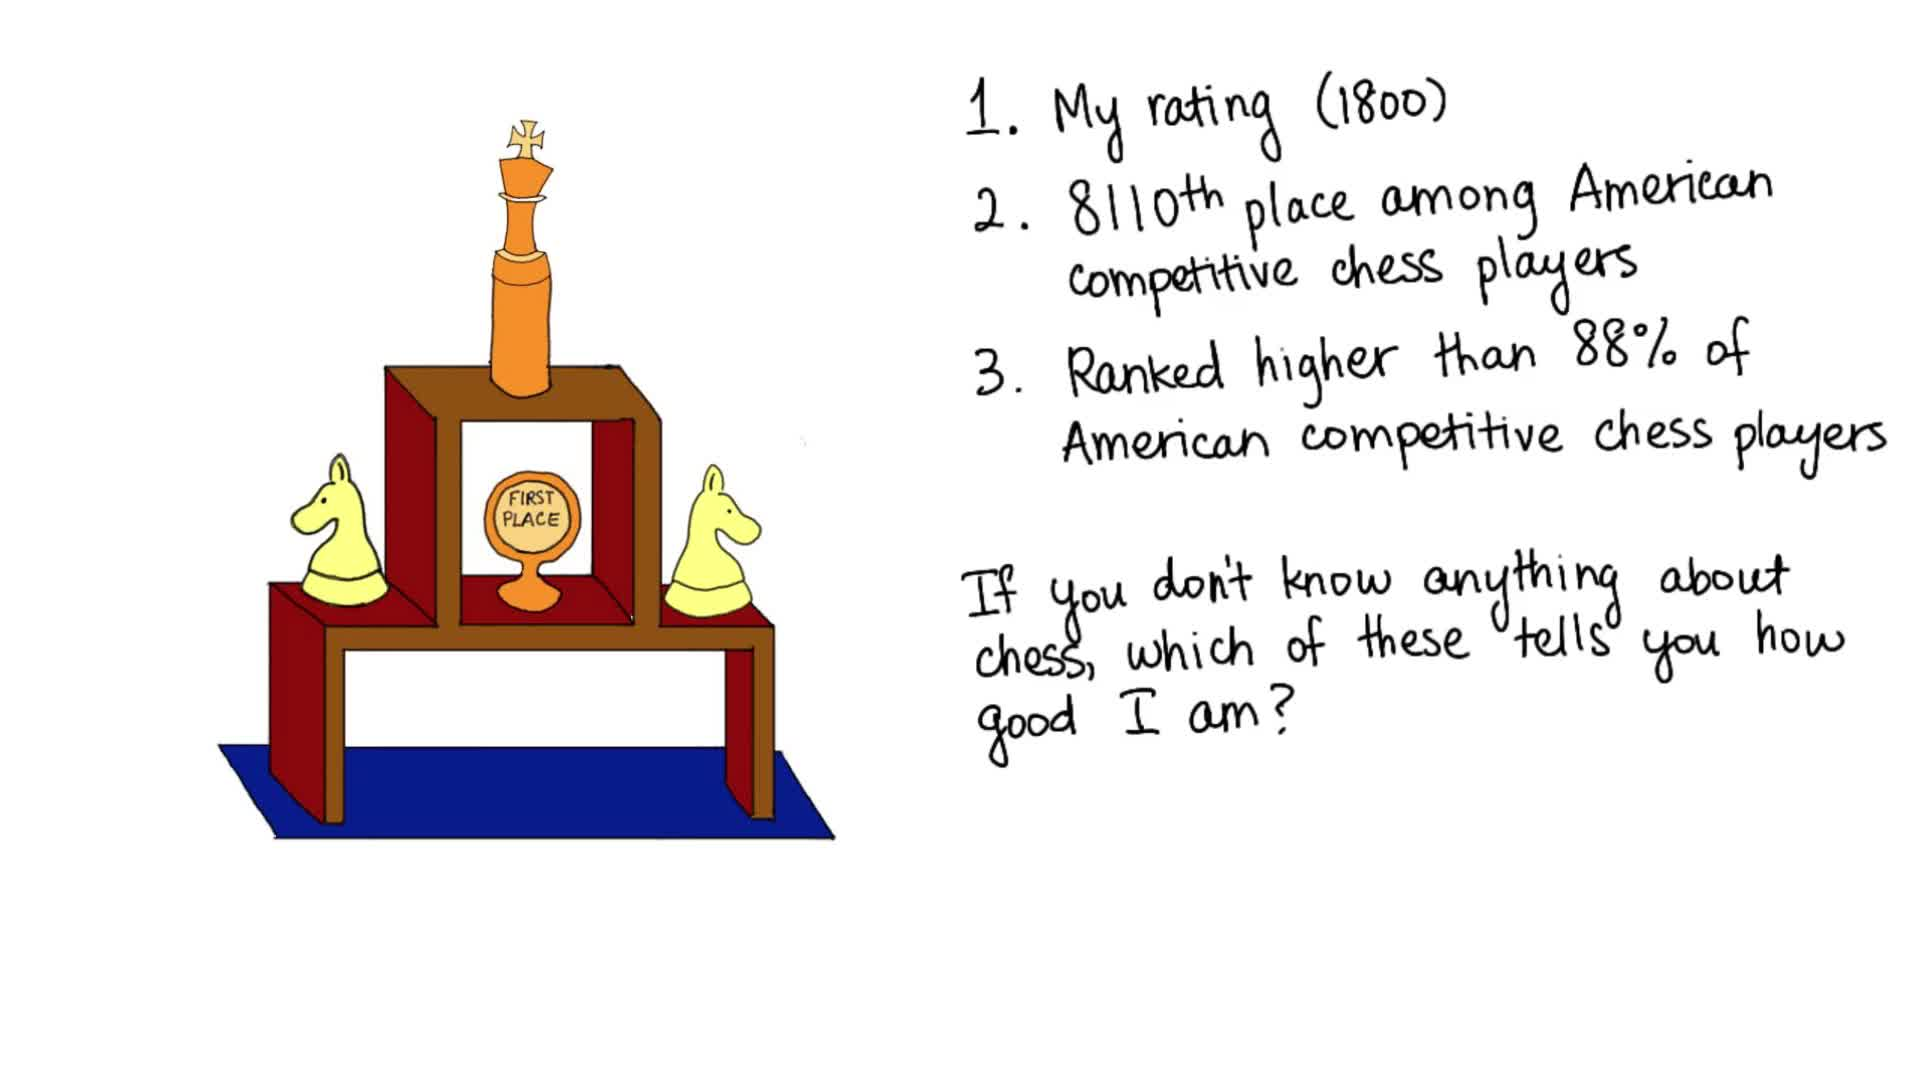 FIRST
PLACE
1. My rating (1800)
2. 8110th place among American
competitive chess players
3. Ranked higher than 88% of
American competitive chess players
If you don't know anything about
chess, which of these tells you how
good I am?